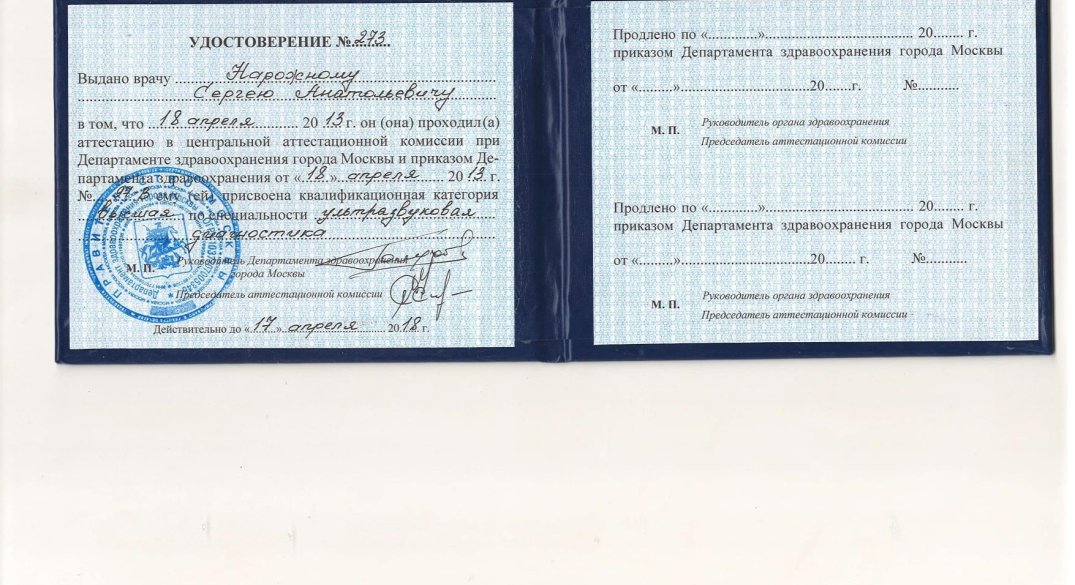 УДОСТОВЕРЕНИЕ №273
Выдано врачу Нарожному
Сергею Анатольевичу
в том, что 18 апреля 20 13 г. он (она) проходил(а)
аттестацию в центральной аттестационной комиссии при
Департаменте здравоохранения города Москвы и приказом Де-
партамента здравоохранения от «18» апреля 20 13 г.
№ ему (ей) присвоена квалификационная категория
высшая по специальности ультразвуковая
диагностика
Руководитель Департамента здравоохранения
М. П. города Москвы
Председатель аттестационной комиссии
Действительно до «17» апреля 2018 г.
Продлено по «.............»...................................... 20........ г.
приказом Департамента здравоохранения города Москвы
от «.........»...................................20.......г. №...........
Руководитель органа здравоохранения
М. П.
Председатель аттестационной комиссии
Продлено по «.............»...................................... 20........ г.
приказом Департамента здравоохранения города Москвы
от «.........»...................................20........ г. №...........
Руководитель органа здравоохранения
М. П.
Председатель аттестационной комиссии